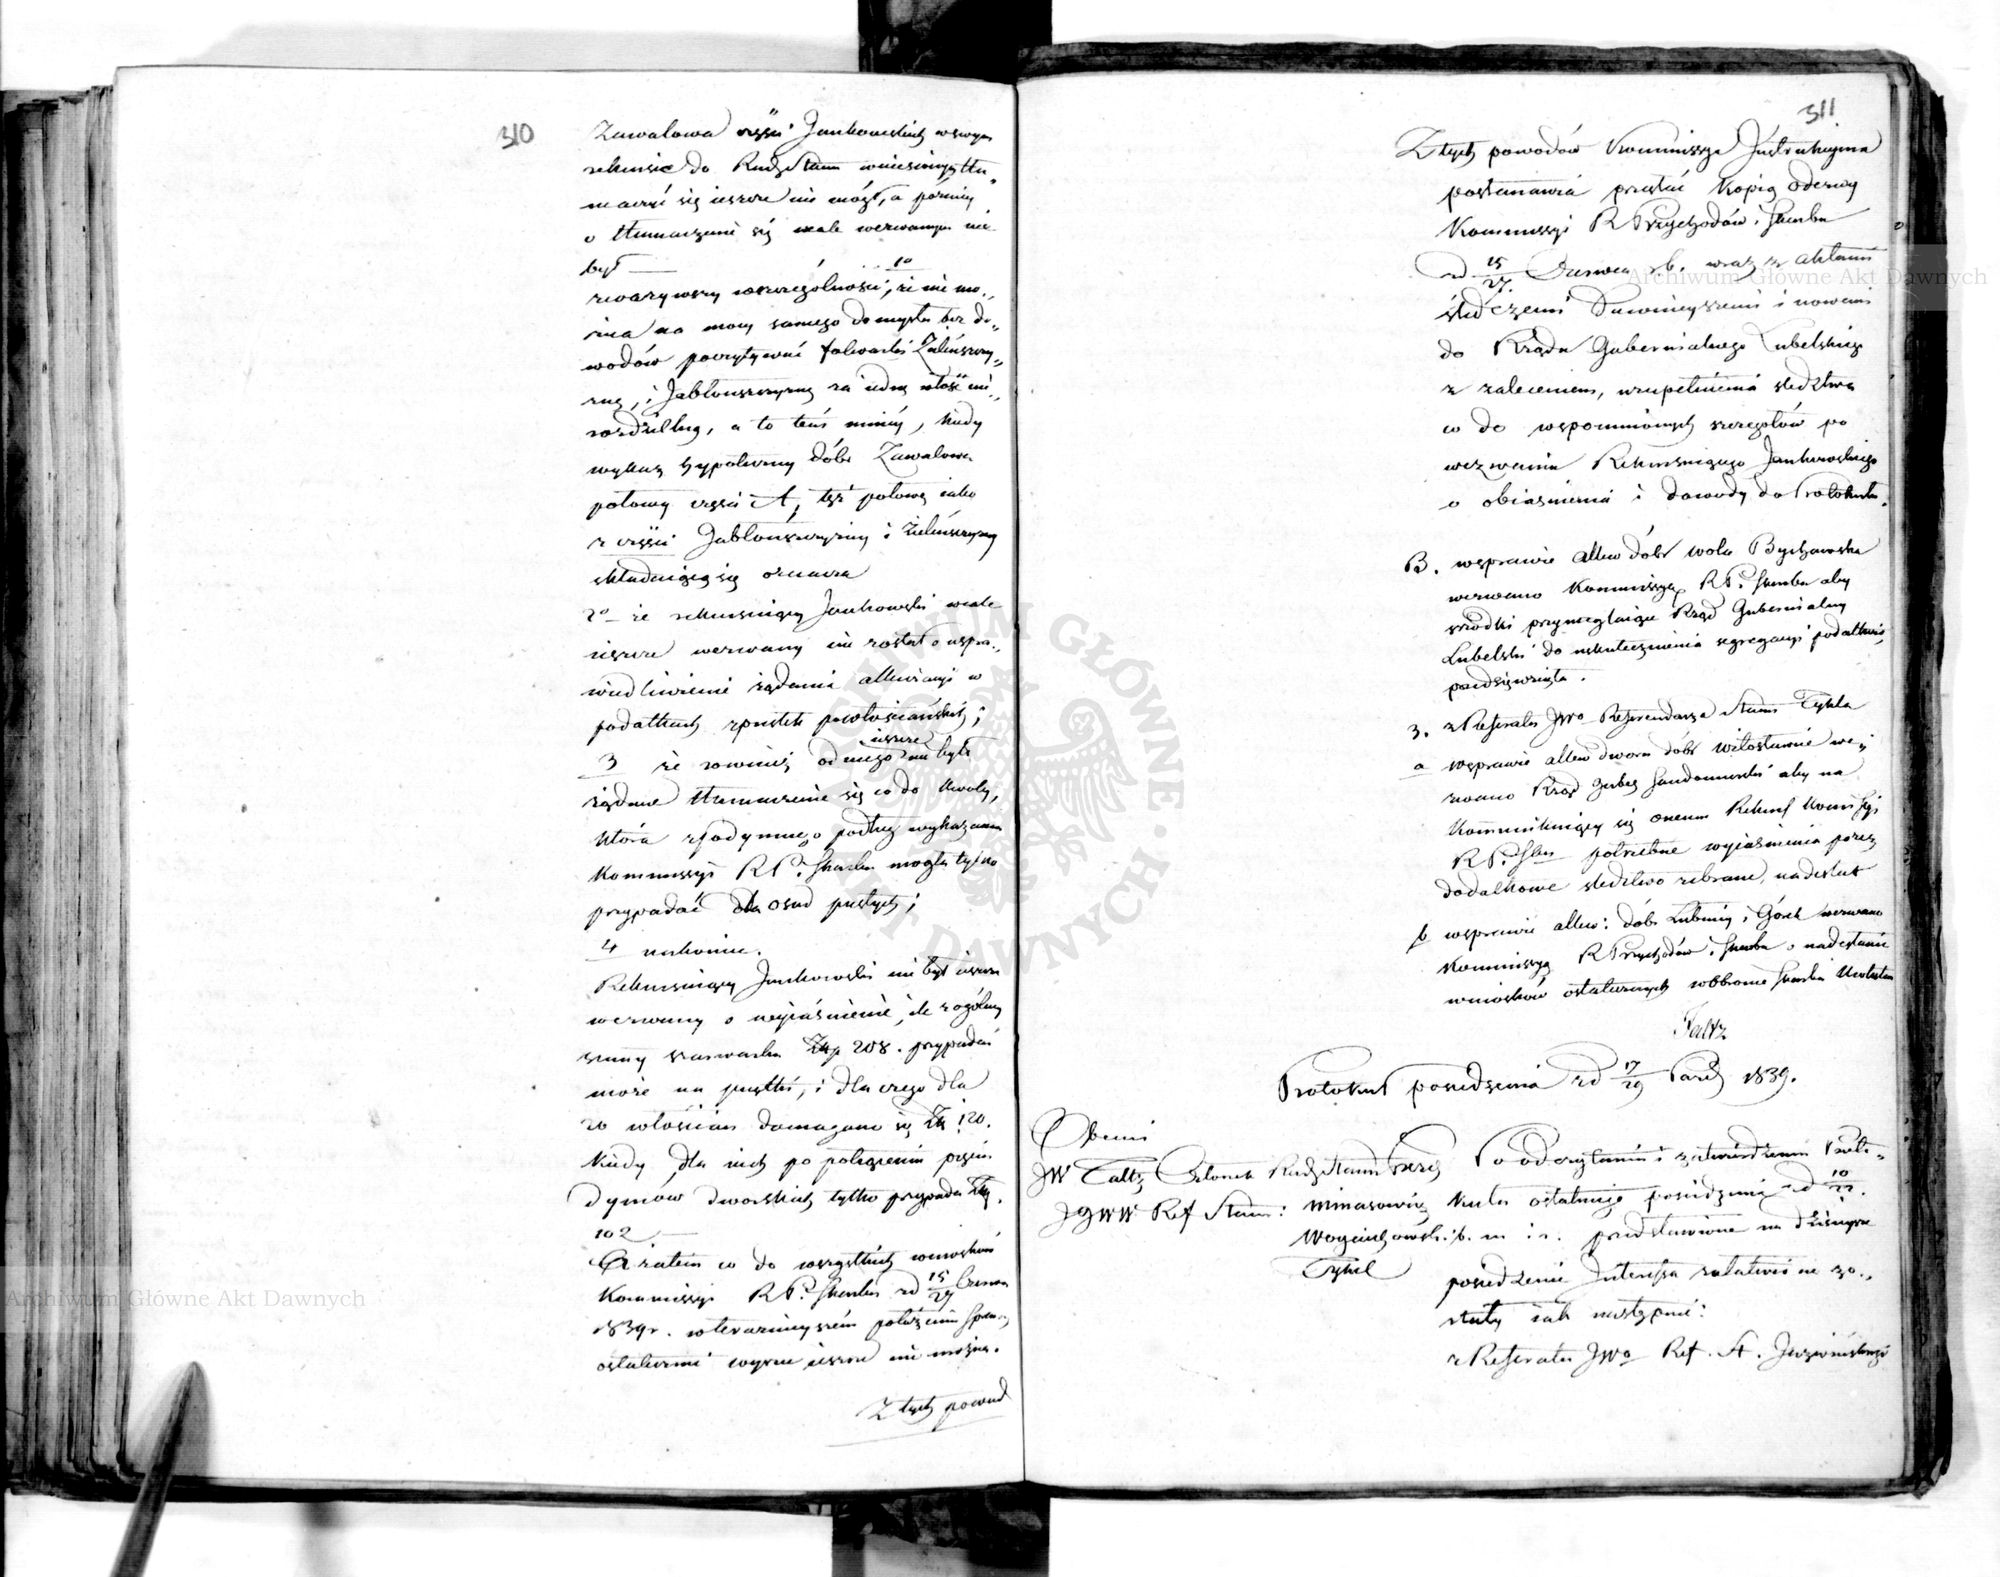 310
Zawalowa części Jankowskich w swym
rekursie do Rady Stanu wniesionym tłu„
maczyć się jeszcze nie mógł, a poźniej
o tłumaczenie się wcale wezwanym nie
był
1o
zważywszy w szczególności, że nie mo„
żna na mocy samego domysłu bez do„
wodów poczytywać folwarki Zielińszczy„
znę, i Jabłońszczyznę za jedną włość nie„
rozdzielną, a to tém mniéj, kiedy
wykaz hypoteczny dóbr Zawalowa
połowy części A, też połowę jako
z części Jabłońszczyzny i Zielińszczyzny
składającą się oznacza
2o że rekursujący Jankowski wcale
jeszcze wezwany nie został o uspra„
wiedliwienie żądania allewiacyi w
podatkach z pustek po włościańskich;
3 że równiéż od niego jeszcze nie było
żądane tłumaczenie się co do kwoty,
która z podymnego podług wykazania
Kommissyi R. P. i Skarbu mogła tylko
przypadać dla osad pustych;
4 nakoniec.
Rekursujący Jankowski nie był jeszcze
wezwany o wyjaśnienie, ile z ogólnéj
summy szarwarku Złp 208. przypadać
może na pustki, i dla czego dla
20 włościan domagano się Złp 120.
kiedy dla nich po potrąceniu pięciu
dymów dworskich tylko przypada Złp.
102
A zatém co do wszystkich wniosków
Kommissyi R. P. i Skarbu z d 15/27 Czerwca
1839 r. w teraźniejszém położeniu sprawy
ostatecznie wyrzec jeszcze nie można.
Z tych powod
311
Z tych powodów Kommissya Instrukcyjna
postanawia przesłać kopią odezwy
Kommissyi R. Przychodów i Skarbu
z d 15/27. Czerwca r. b. wraz z aktami
śledczemi dawniejszemi i nowemi
do Rządu Gubernialnego Lubelskiego
z zaleceniem, uzupełnienia śledztwa
co do wspomnionych szczegółów po
wezwaniu Rekursującego Jankowskiego
o objaśnienia i dowody do Protokułu.
B. w sprawie allew dóbr Wola Bychawska
wezwano Kommissyą R. P. i Skarbu aby
środki przynaglające Rząd Gubernialny
Lubelski do uskutecznienia segregacyi podatków
przedsięwzięła.
3. z Referatu JWo Referendarza Stanu Tykla
a w sprawie allew dworu dóbr Witosławice we„
zwano Rząd Guber Sandomierski aby na
kommunikujący się onemu Rekurs Kommissyi
R. P. i Skar potrzebne wyjaśnienia przez
dodatkowe śledztwo zebrane, nadesłał
b w sprawie allew: dóbr Lubenij i Górek wezwano
Kommissyą R. Przychodów i Skarbu o nadesłanie
wniosków ostatecznych w obronie Skarbu Królestwa
Faltz
Protokuł posiedzenia z d 17/29 Paźdz 1839.
Obecni
JW Faltz Członek Rady Stanu Prezyd
JJWW Ref Stanu: Minasowicz
Woyciechowski
Tykel
Po odczytaniu i zatwierdzeniu Proto„
kułu ostatniego posiedzenia z d 10/22.
b. m i r. przedstawione na dzisiejsze
posiedzenie Interessa załatwione zo„
stały jak następuie:
z Referatu JWo Ref. St.